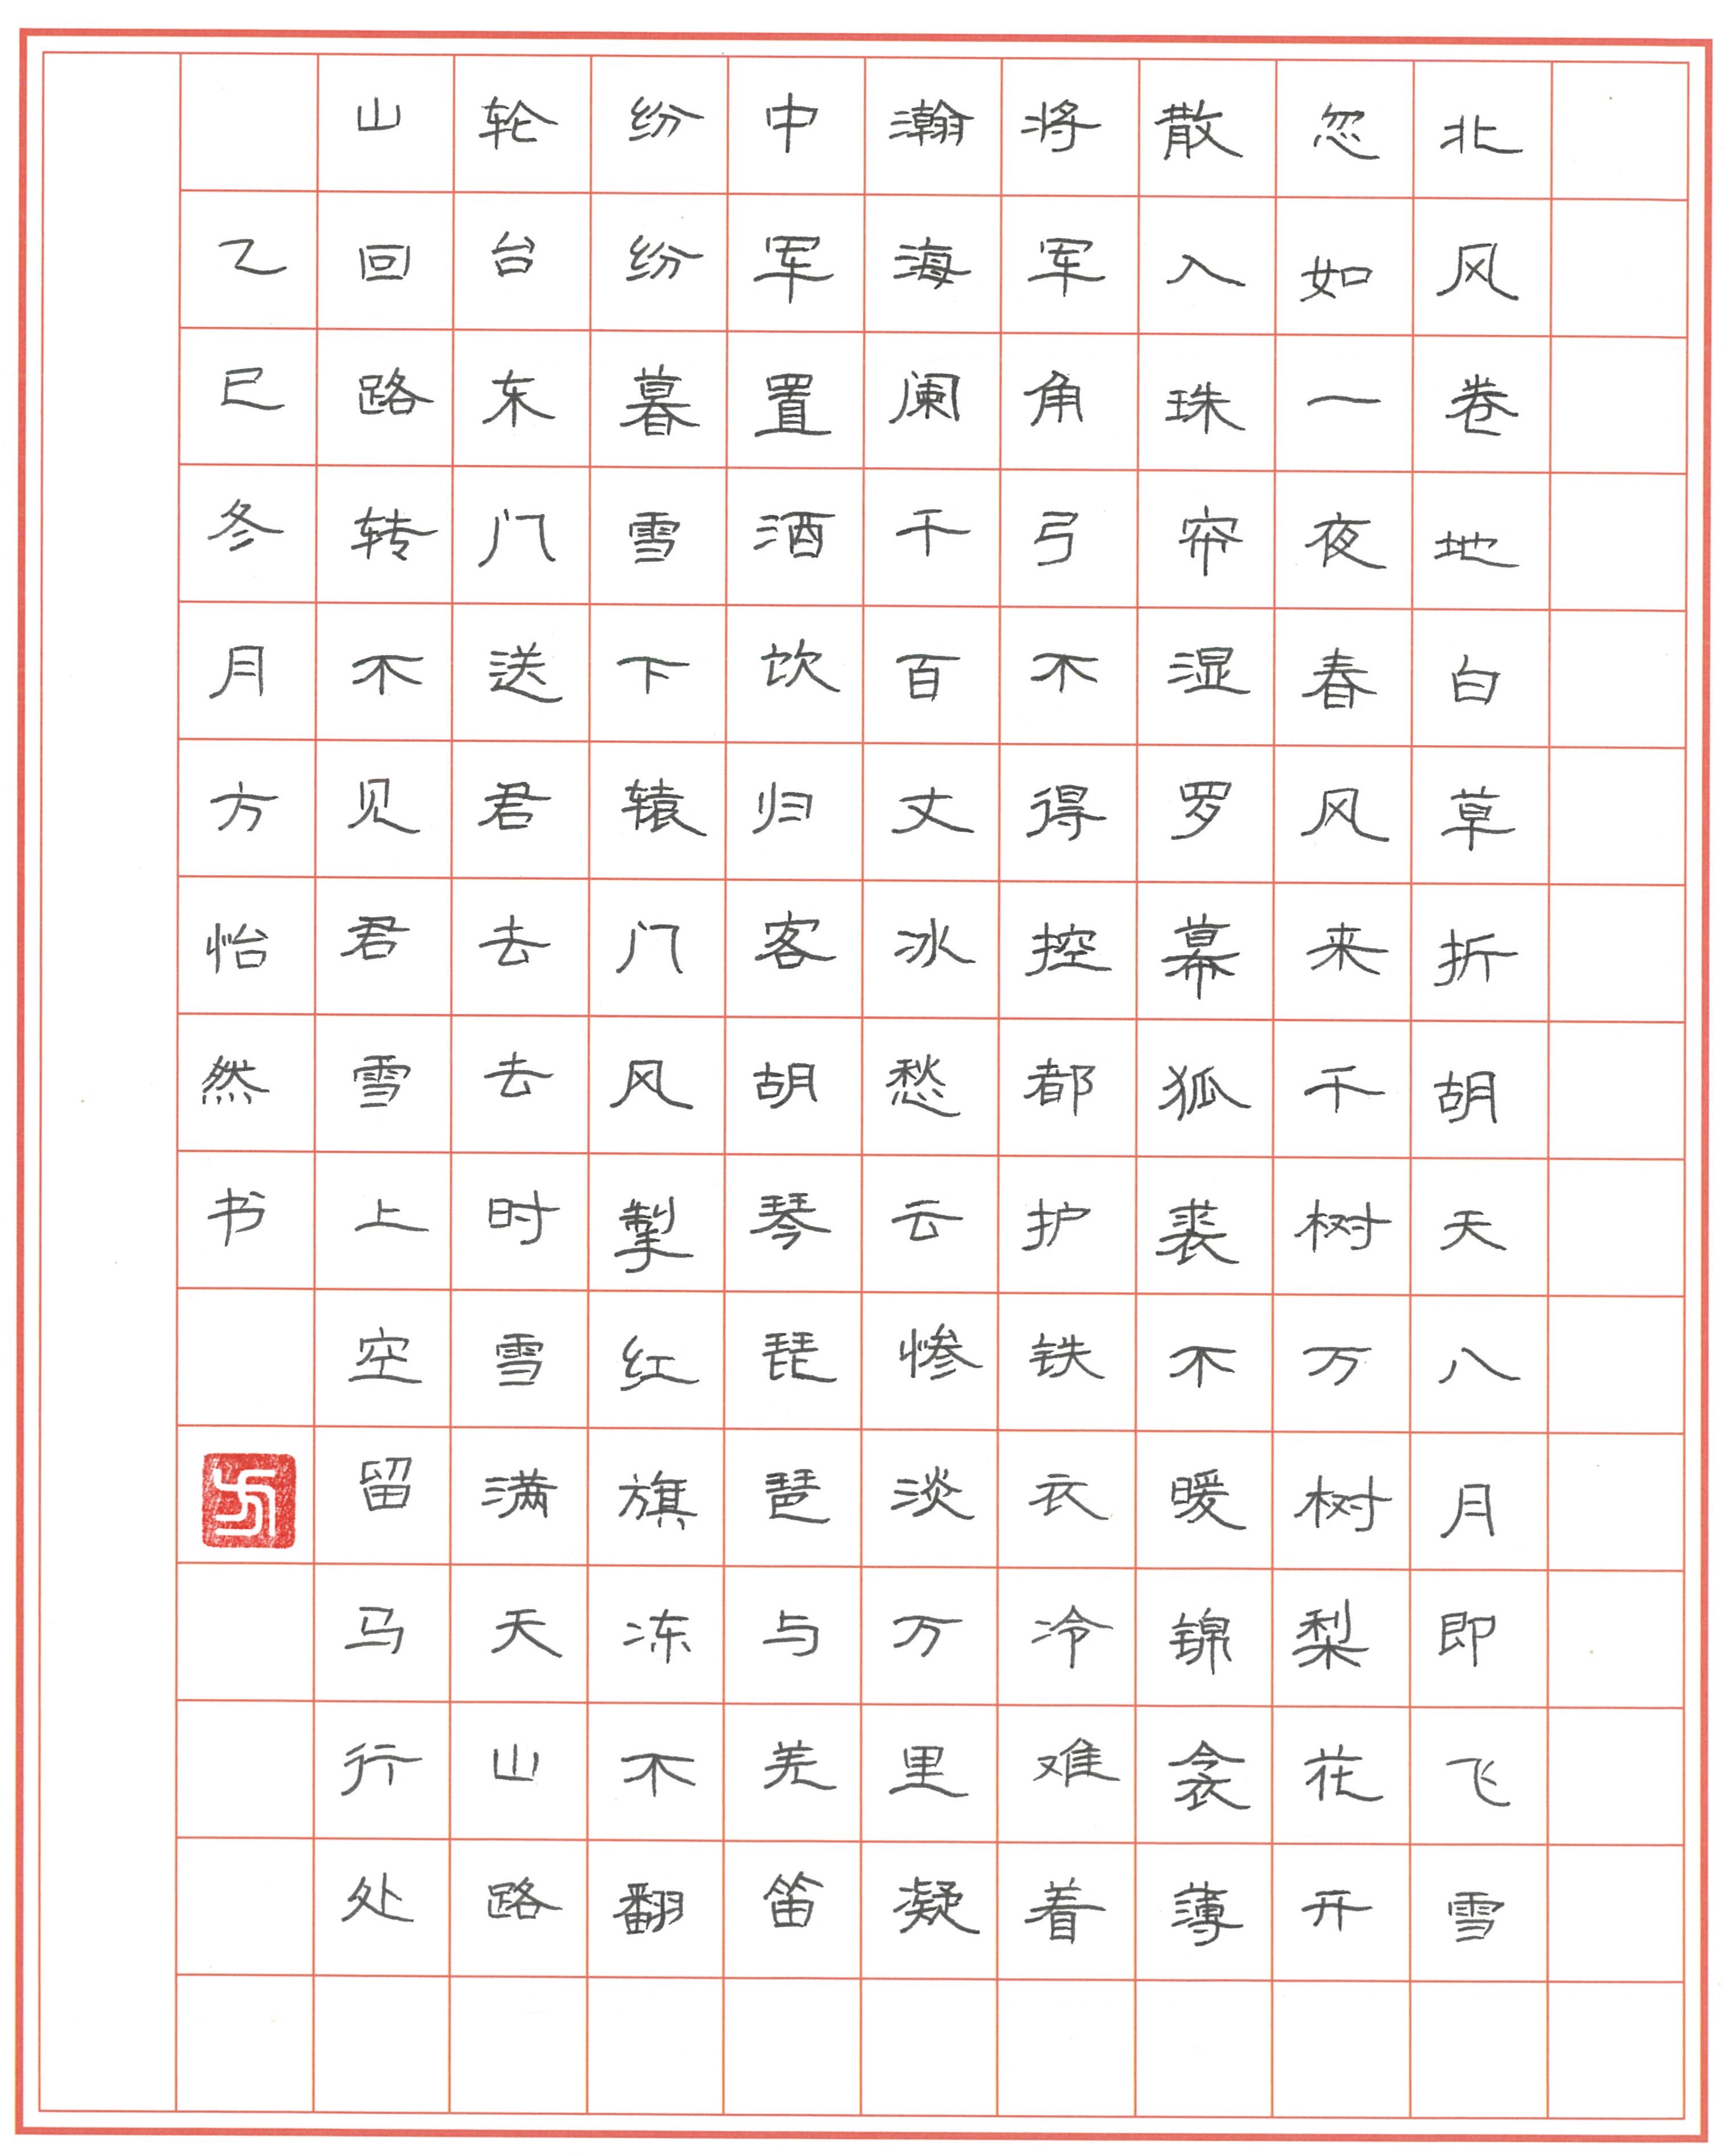 北风卷地白草折胡天八月即飞雪
忽如一夜春风来千树万树梨花开
散入珠帘湿罗幕狐裘不暖锦衾薄
将军角弓不得控都护铁衣冷难着
瀚海阑干百丈冰愁云惨淡万里凝
中军置酒饮归客胡琴琵琶与羌笛
纷纷暮雪下辕门风掣红旗冻不翻
轮台东门送君去去时雪满天山路
山回路转不见君雪上空留马行处
乙巳冬月方怡然书
方